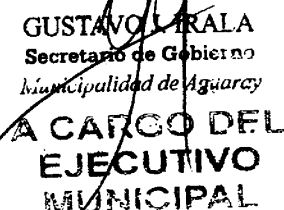 GUSTAVO J. IRALA
Secretario de Gobierno
Municipalidad de Aguaray
A CARGO DEL
EJECUTIVO
MUNICIPAL